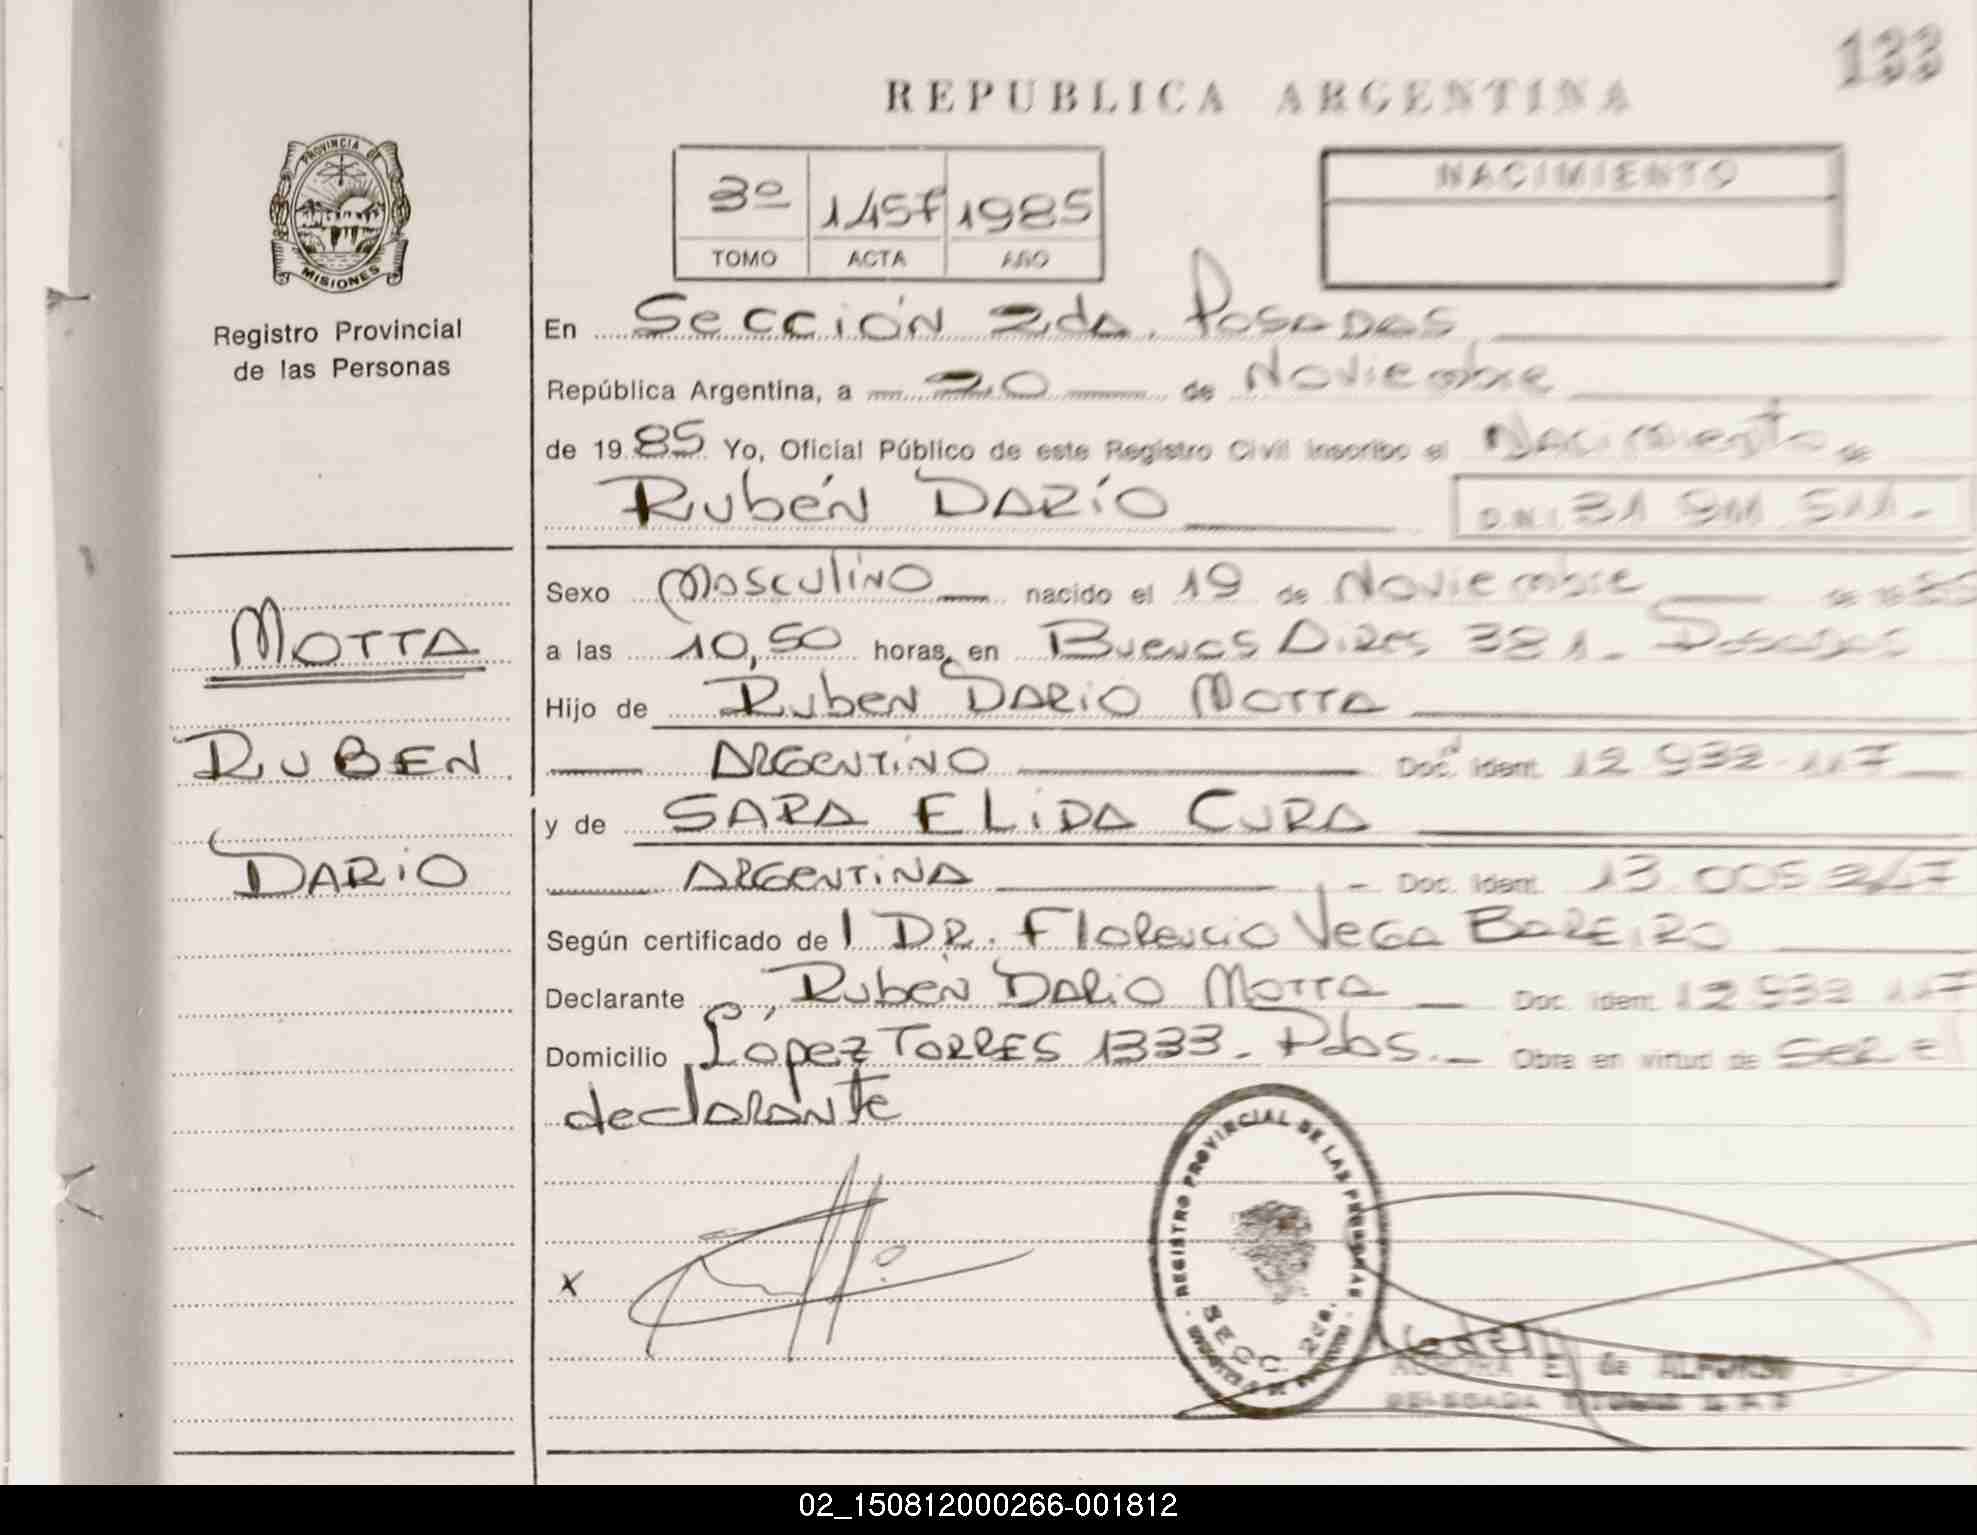 133
REPUBLICA ARGENTINA
PROVINCIA DE
MISIONES
Registro Provincial
de las Personas
3º 1457 1985
TOMO ACTA AÑO
NACIMIENTO
En Sección 2da. Posadas
República Argentina, a 20 de Noviembre
de 1985 Yo, Oficial Público de este Registro Civil inscribo el Nacimiento de
Rubén Darío
D.N.I 31 911 511.-
MOTTA
RUBEN
DARIO
Sexo Masculino nacido el 19 de Noviembre de 1985
a las 10,50 horas, en Buenos Aires 381. Posadas
Hijo de Ruben Dario Motta
Argentino Doc. Ident. 12 932 117
y de SARA ELIDA CURA
Argentina Doc. Ident. 13 005 247
Según certificado de l Dr. Florencio Vega Bareiro
Declarante Rubén Dario Motta Doc. Ident. 12 932 117
Domicilio López Torres 1333. Pdas. Obra en virtud de ser el
declarante
x
REGISTRO PROVINCIAL DE LAS PERSONAS
SECC. 2da.
E. de ALFONSO
DELEGADA
02_150812000266-001812